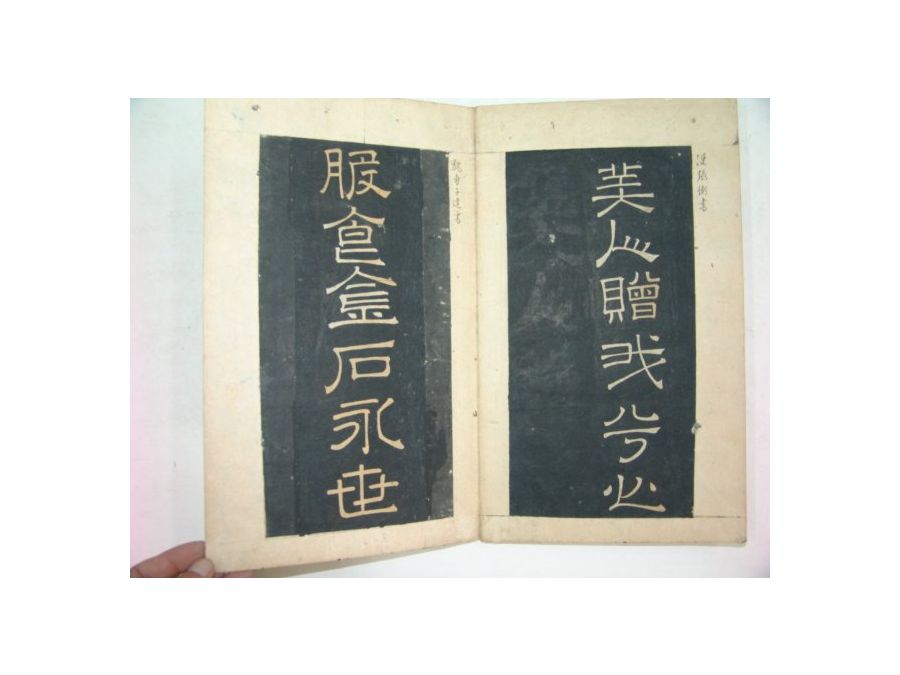 漢張衡書
美人贈我兮必
魏曹子建書
服食金石永世